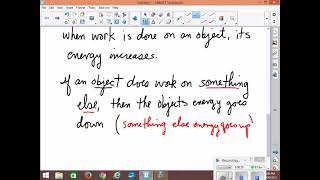 when work is done on an object, its
energy increases.
if an object does work on something
else, then the objects energy goes
down (something else energy goes up)